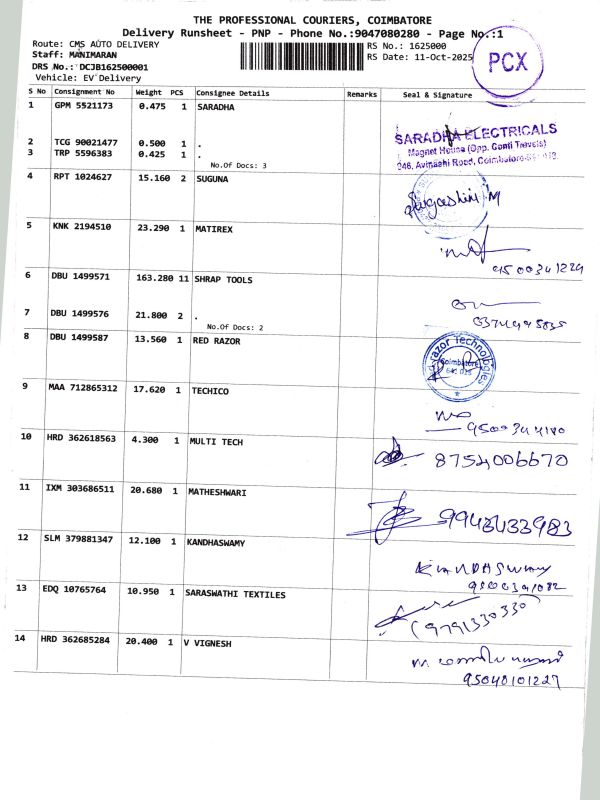 THE PROFESSIONAL COURIERS, COIMBATORE
Delivery Runsheet - PNP - Phone No.:9047080280 - Page No.:1
Route: CMS AUTO DELIVERY
RS No.: 1625000
Staff: MANIMARAN
RS Date: 11-Oct-2025
DRS No.: DCJB162500001
Vehicle: EV Delivery
PCX
S No Consignment No Weight PCS Consignee Details Remarks Seal & Signature
1 GPM 5521173 0.475 1 SARADHA
2 TCG 90021477 0.500 1 .
3 TRP 5596383 0.425 1 .
No.Of Docs: 3
SARADHA ELECTRICALS
Magnet House (Opp. Conti Travels)
246, Avinashi Road, Coimbatore
4 RPT 1024627 15.160 2 SUGUNA
5 KNK 2194510 23.290 1 MATIREX
9500341229
6 DBU 1499571 163.280 11 SHRAP TOOLS
7 DBU 1499576 21.800 2 .
No.Of Docs: 2
8 DBU 1499587 13.560 1 RED RAZOR
razor Technologies
Coimbatore
9 MAA 712865312 17.620 1 TECHICO
10 HRD 362618563 4.300 1 MULTI TECH
8754006670
11 IXM 303686511 20.680 1 MATHESHWARI
12 SLM 379881347 12.100 1 KANDHASWAMY
KANDHASwamy
13 EDQ 10765764 10.950 1 SARASWATHI TEXTILES
(9791330330)
14 HRD 362685284 20.400 1 V VIGNESH